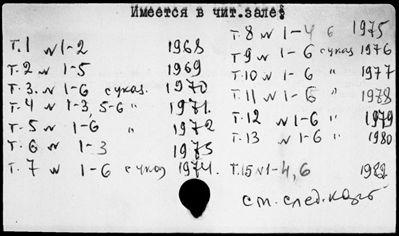 Имеется в чит.зале:
т.1 N 1-2 1968
т.2 N 1-5 1969
т.3. N 1-6 с указ. 1970
т.4 N 1-3, 5-6 " 1971.
т.5 N 1-6 " 1972
т.6 N 1-3 1973
т.7 N 1-6 с указ 1974.
т.8 N 1-4 6 1975
т.9 N 1-6 с указ 1976
т.10 N 1-6 " 1977
т.11 N 1-6 " 1978
т.12 N 1-6 " 1979
т.13 N 1-6 " 1980
т.15 N 1-4, 6 1982
см. след. карт